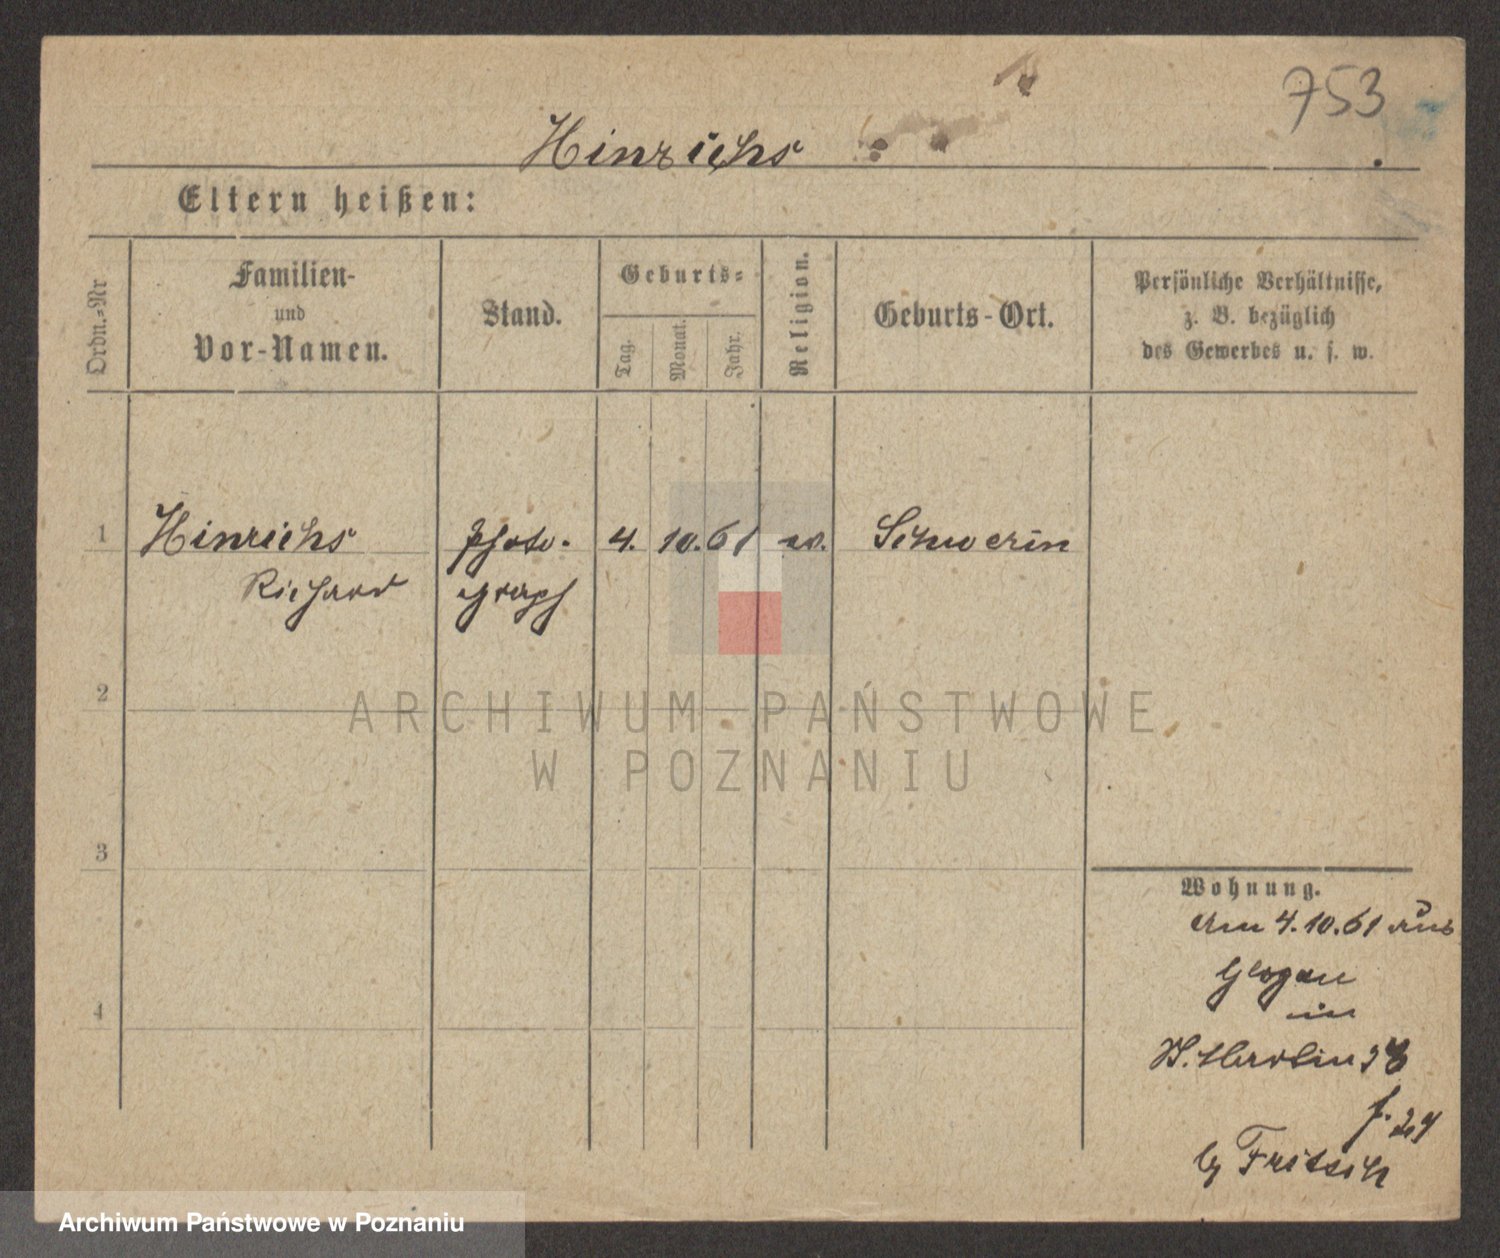 753
Hinrichs
Eltern heißen:
Ordn.-Nr
Familien-
und
Vor-Namen.
Stand.
Geburts-
Tag.
Monat.
Jahr.
Religion.
Geburts-Ort.
Persönliche Verhältnisse,
z. B. bezüglich
des Gewerbes u. s. w.
1 Hinrichs Photo- 4. 10. 61 Schwerin
Richard graph
2
ARCHIWUM PAŃSTWOWE
W POZNANIU
3
Wohnung.
am 4.10.61 aus
Glogau
in
4
St. Martin
Fritsch
Archiwum Państwowe w Poznaniu